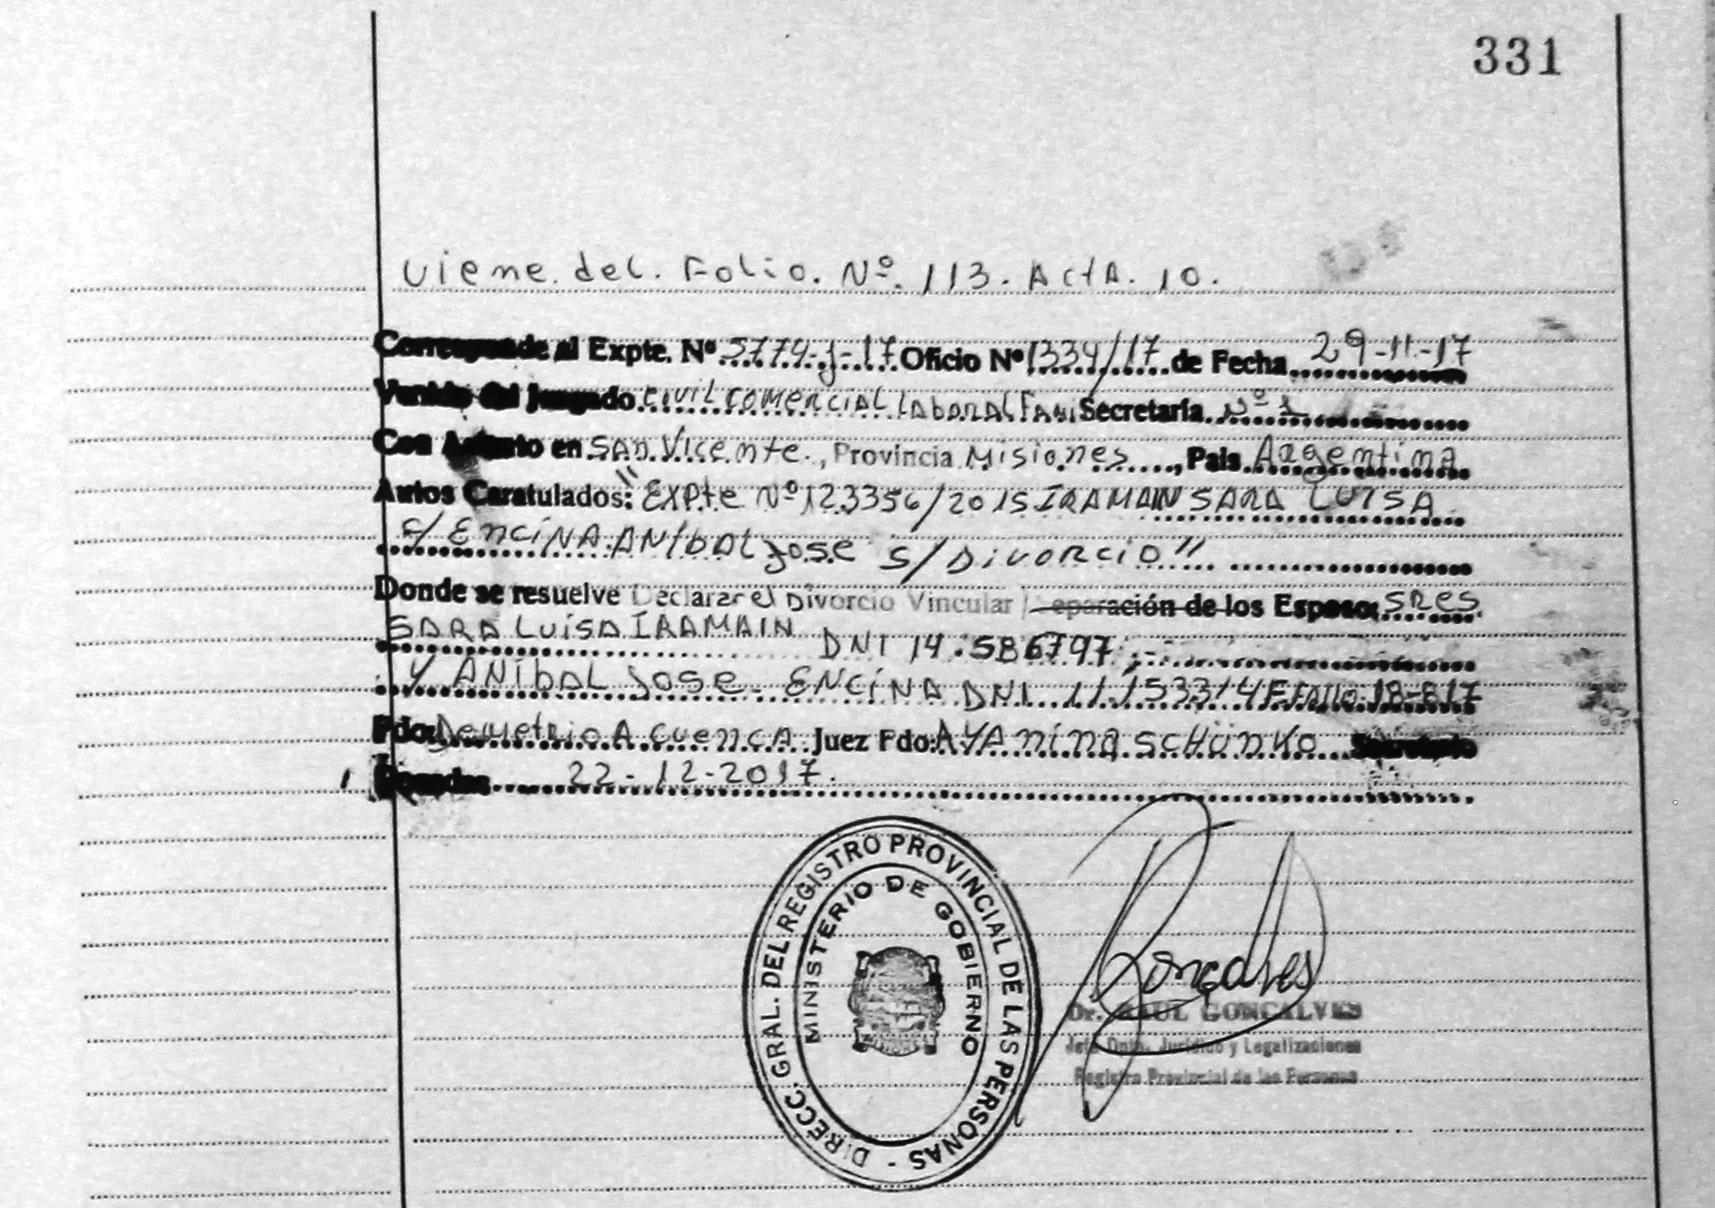 331
Viene. del. Folio. Nº. 113. Acta. 10.
Corresponde al Expte. Nº 5774-J-17 Oficio Nº 1334/17 de Fecha 29-11-17
Venido del Juzgado Civil Comercial Laboral Fami Secretaría Nº 1
Con Asiento en San Vicente, Provincia Misiones, Pais Argentina
Autos Caratulados: "Expte Nº 123356/2015 IRAMAIN SARA LUISA
c/ ENCINA ANIBAL Jose s/ Divorcio"
Donde se resuelve Declarar el Divorcio Vincular / Separación de los Esposos SRES
SARA LUISA IRAMAIN DNI 14.586797,-
Y ANIBAL Jose ENCINA DNI 11153314 F. Fallo 18-817
Fdo: Demetrio A Cuenca Juez Fdo: AYANINA SCHÜNKO Secretario
Posadas 22-12-2017.
DIRECC. GRAL. DEL REGISTRO PROVINCIAL DE LAS PERSONAS -
MINISTERIO DE GOBIERNO
Goncalves
Dr. RAUL GONCALVES
Jefe Dpto. Jurídico y Legalizaciones
Registro Provincial de las Personas